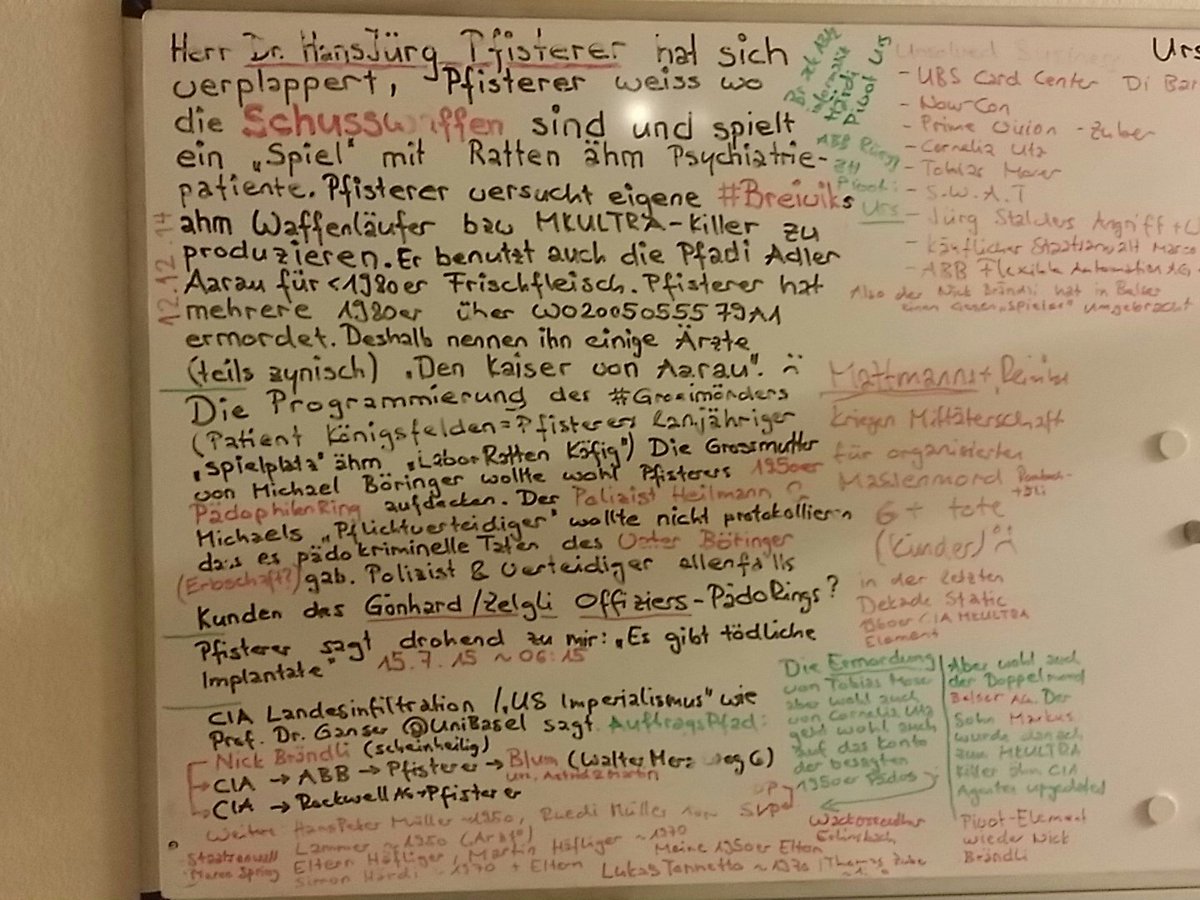 Herr Dr. HansJürg Pfisterer hat sich
verplappert, Pfisterer weiss wo
die Schusswaffen sind und spielt
ein "Spiel" mit Ratten ähm Psychiatrie-
patiente. Pfisterer versucht eigene #Breiviks
ähm Waffenläufer bzw MKULTRA-Killer zu
produzieren. Er benutzt auch die Pfadi Adler
Aarau für <1980er Frischfleisch. Pfisterer hat
mehrere 1980er über WO2005055579A1
ermordet. Deshalb nennen ihn einige Ärzte
(teils zynisch) "Den Kaiser von Aarau".
12.12.14
Die Programmierung des
(Patient Königsfelden=Pfisterers lanjähriger
"Spielplatz" ähm "LaborRatten Käfig") Die Grossmutter
von Michael Böringer wollte wohl Pfisterers 1950er
PädophilenRing aufdecken. Der Polizist Heilmann
Michaels "Pflichtverteidiger" wollte nicht protokollieren
dass es pädokriminelle Taten des Vater Böringer
(Erbschaft?) gab. Polizist & Verteidiger allenfalls
Kunden des Gönhard/Zelgli Offiziers-PädoRings?
Pfisterer sagt drohend zu mir: "Es gibt tödliche
Implantate" 15.7.15 ~06:15
CIA Landesinfiltration / "US Imperialismus" wie
Prof. Dr. Ganser @UniBasel sagt. AuftragsPfad:
Nick Brändli (scheinheilig)
CIA → ABB → Pfisterer → Blum (Walter Merz weg 6)
CIA → Rockwell AG → Pfisterer
Weitere: HansPeter Müller ~1950, Ruedi Müller
Lammer ~1950
Eltern Häfliger, Martin Häfliger ~1970
Meine 1950er Eltern
Simon Härdi ~1970 + Eltern Lukas Tannetta ~1970
Staatsanwalt
Härdi
Pivot Urs
ABB
Pivot:
Urs
Urs
- UBS Card Center Di
- Now-Con
- Prime Vision - Zuber
- Cornelia Utz
- Tobias Moser
- S.W.A.T
- Jürg Stalders Angriff
- Käuflicher Staatsanwalt Marco
- ABB Flexible Automation AG
Also der Nick Brändli hat in
einen umgebracht
Mattmanns +
kriegen Mittäterschaft
für organisierten
Massenmord
6+ tote
(Kinder)
in der letzten
Dekade Static
1960er CIA MKULTRA
Element
Die Ermordung
von Tobias Moser
aber wohl auch
von Cornelia Utz
geht wohl auch
auf das Konto
der besagten
1950er Pädos
SVP
Aber wohl auch
der Doppelmord
Balser AG. Der
Sohn Markus
wurde danach
zum MKULTRA
Killer ähm CIA
Agenten upgedated
Pivot-Element
wieder Nick
Brändli